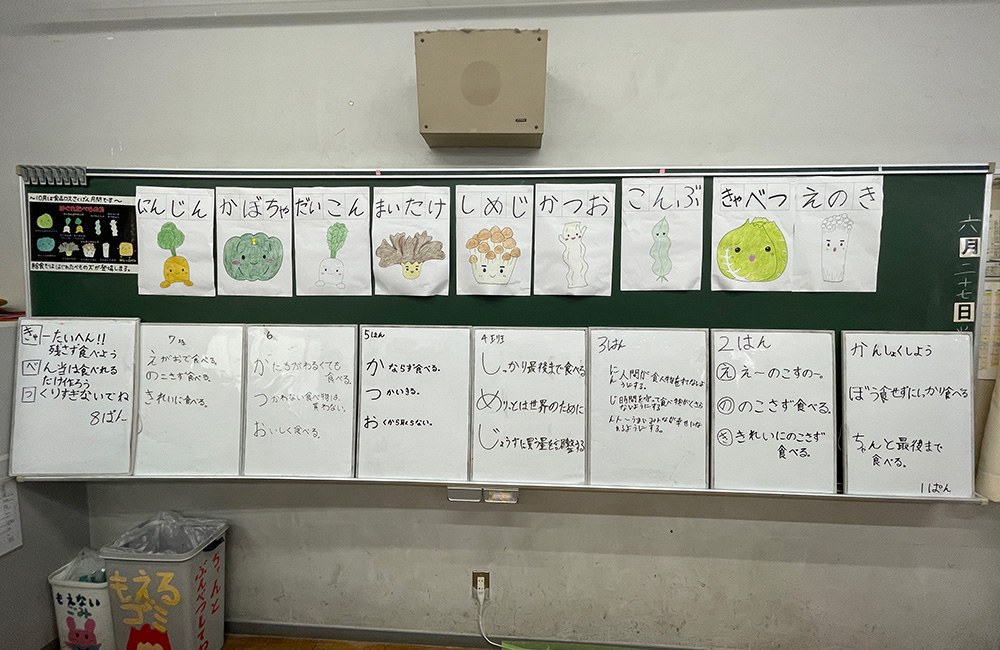 〜10月は食品ロスさくげん月間です〜
にんじん
かぼちゃ
だいこん
まいたけ
しめじ
かつお
こんぶ
きゃべつ
えのき
六月二十七日
きゃーたいへん!!
残さず食べよう
べん当は食べれる
だけ作ろう
つくりすぎないでね
8ぱん
7
えがおで食べる。
のこさず食べる。
きれいに食べる。
6
がたちがわるくても
食べる。
つかわない食べ物は、
買わない。
おいしく食べる。
5はん
かならず食べる。
つかいきる。
おくから取らない。
4班
しっかり最後まで食べる
めりっとは世界のために
じょうずに買う量を調整する
3はん
に人間が食べ物をすてないよ
うにする。
じ時間を守って食べ物がくさら
ないようにする
んんーうまい!みんなが幸せにな
れるようにする。
2はん
え えーのこすのー。
の のこさず食べる。
き きれいにのこさず
食べる。
かんしょくしよう
ぼう食せずにしっかり食べる
ちゃんと最後まで
食べる。
1ぱん
もえない
ごみ
もえる
ゴミ
ちゃんと
ぶんべつしてね